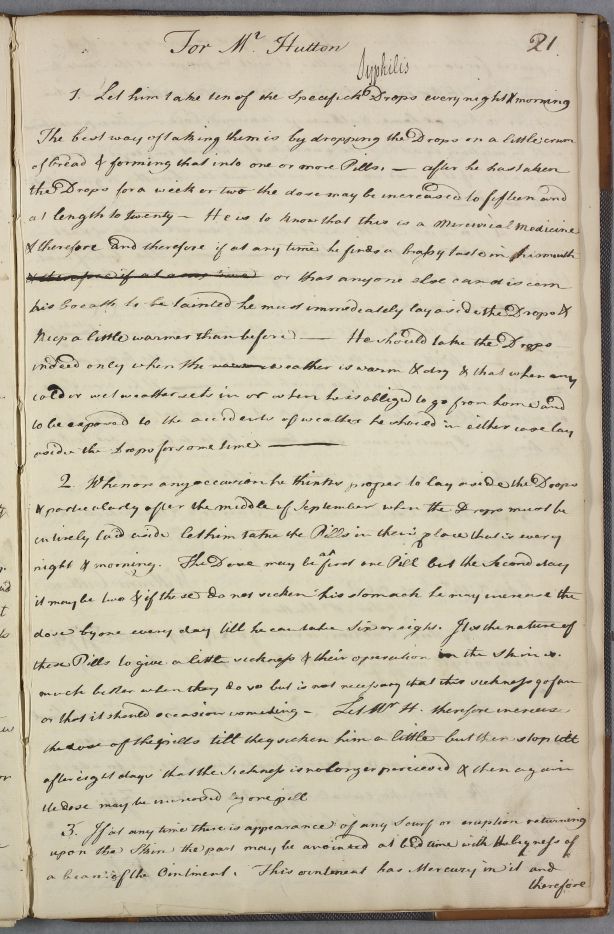 For Mr. Hutton
21
Syphilis
1. Let him take ten of the Specifick Drops every night & morning
The best way of taking them is by dropping the Drops on a little crum
of bread & forming that into one or more Pills. — after he has taken
the Drops for a week or two the dose may be increased to fifteen and
at length to twenty — He is to know that this is a Mercurial Medicine
& therefore and therefore if at any time he finds a brassy taste in his mouth
& therefore if at any time or that anyone else can discern
his breath to be tainted he must immediately lay aside the Drops &
keep a little warmer than before — He should take the Drops
indeed only when the weather is warm & dry & that when any
cold or wet weather sets in or when he is obliged to go from home and
to be exposed to the accidents of weather he should in either case lay
aside the Drops for some time —
2. When on any occasion he thinks proper to lay aside the Drops
& particularly after the middle of September when the Drops must be
intirely laid aside let him take the Pills in their place that is every
night & morning. The Dose may be at first one Pill but the Second day
it may be two & if these do not sicken his stomach he may increase the
dose by one every day till he can take Six or eight. It is the nature of
these Pills to give a little sickness & their operation in the Skin is
much better when they do so but is not necessary that this sickness go far
or that it should occasion vomiting — Let Mr H. therefore increase
the dose of the pills till they sicken him a little but then stop till
after eight days that the Sickness is no longer perceived & then again
the dose may be increased by one pill
3. If at any time there is appearance of any Scurf or eruption returning
upon the Skin the part may be anointed at bed time with the bigness of
a bean of the Ointment. This ointment has Mercury in it and
therefore